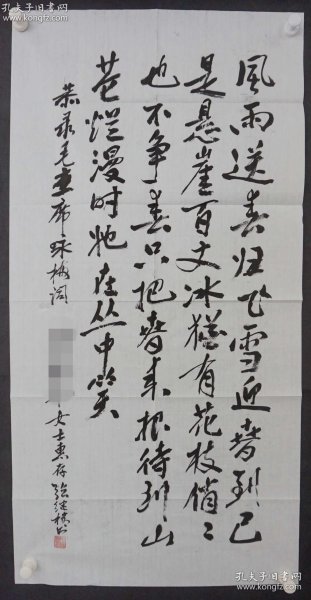 風雨送春归飞雪迎春到已
是悬崖百丈冰犹有花枝俏々
也不争春只把春来报待到山
花烂漫时她在丛中笑
恭录毛主席咏梅词
女士惠存
孔夫子旧书网
孔夫子旧书网